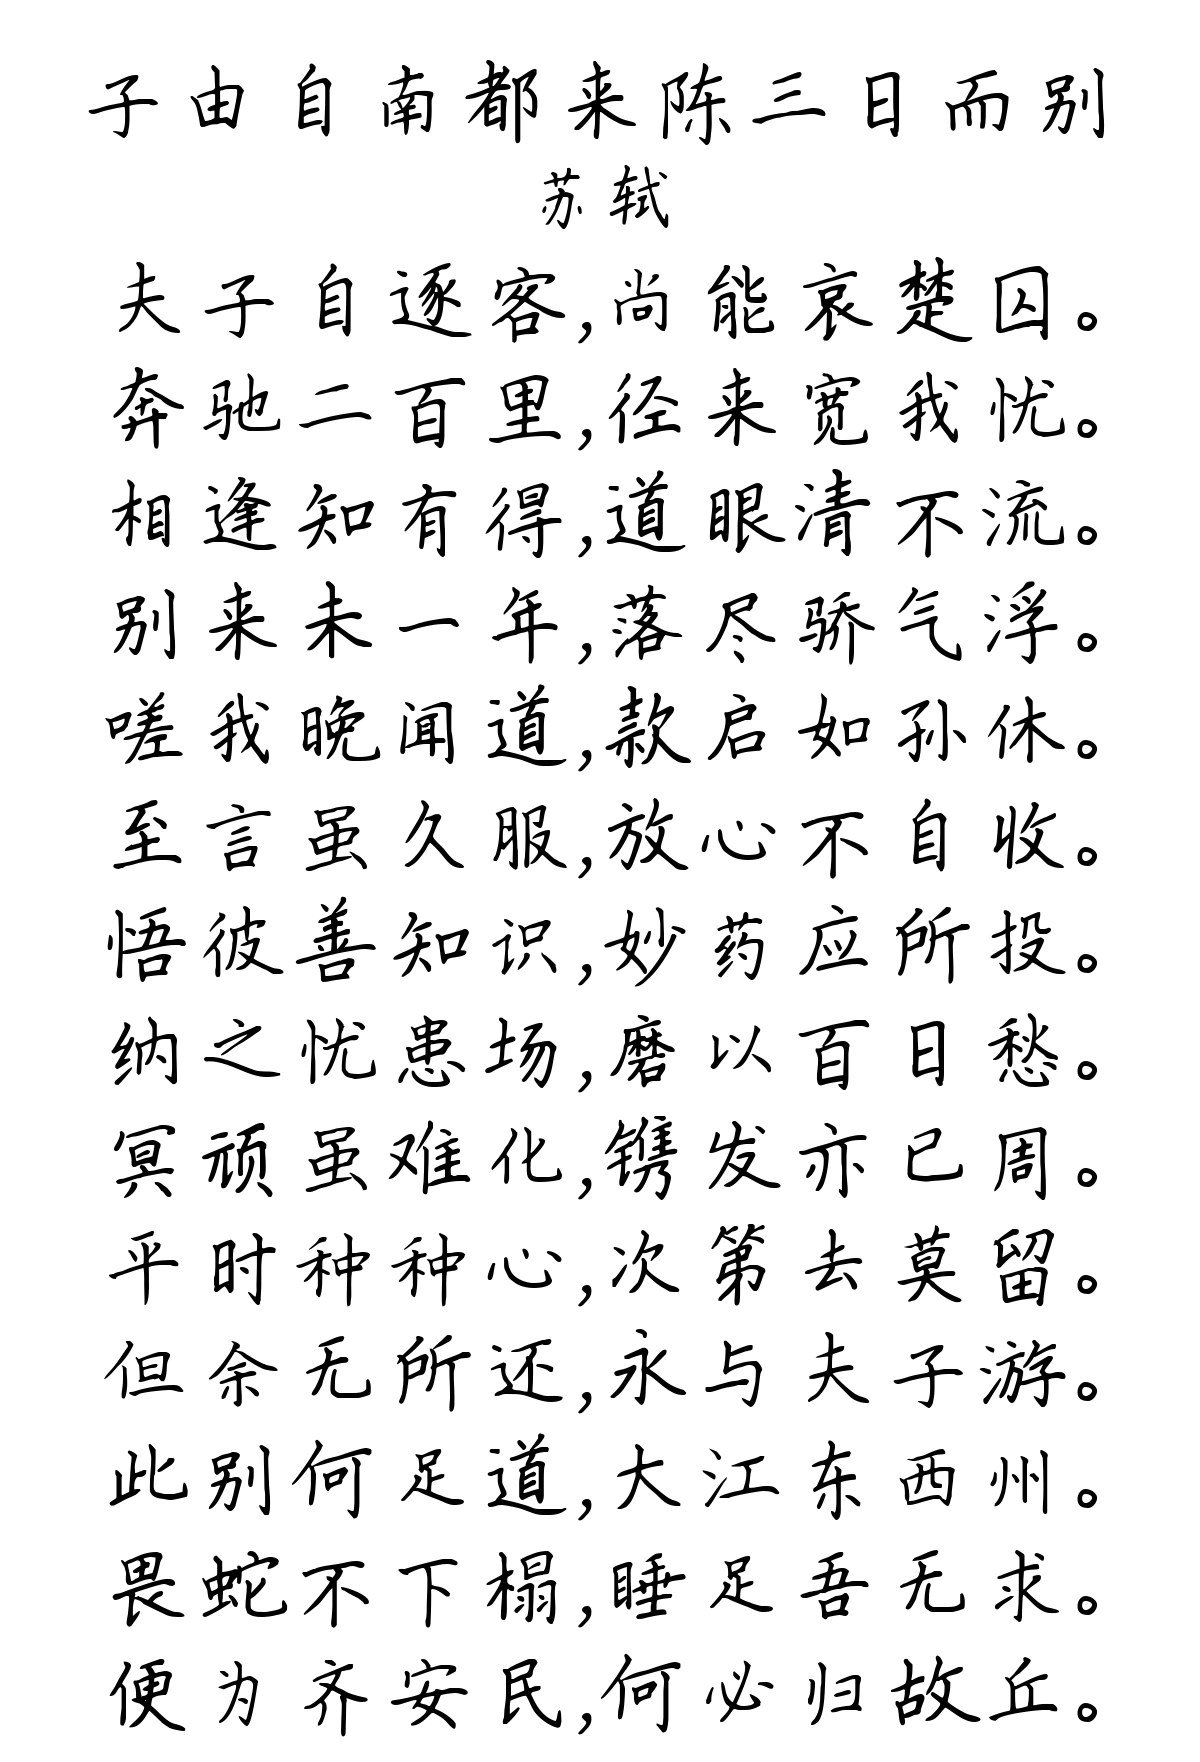 子由自南都来陈三日而别
苏轼
夫子自逐客,尚能哀楚囚。
奔驰二百里,径来宽我忧。
相逢知有得,道眼清不流。
别来未一年,落尽骄气浮。
嗟我晚闻道,款启如孙休。
至言虽久服,放心不自收。
悟彼善知识,妙药应所投。
纳之忧患场,磨以百日愁。
冥顽虽难化,镌发亦已周。
平时种种心,次第去莫留。
但余无所还,永与夫子游。
此别何足道,大江东西州。
畏蛇不下榻,睡足吾无求。
便为齐安民,何必归故丘。